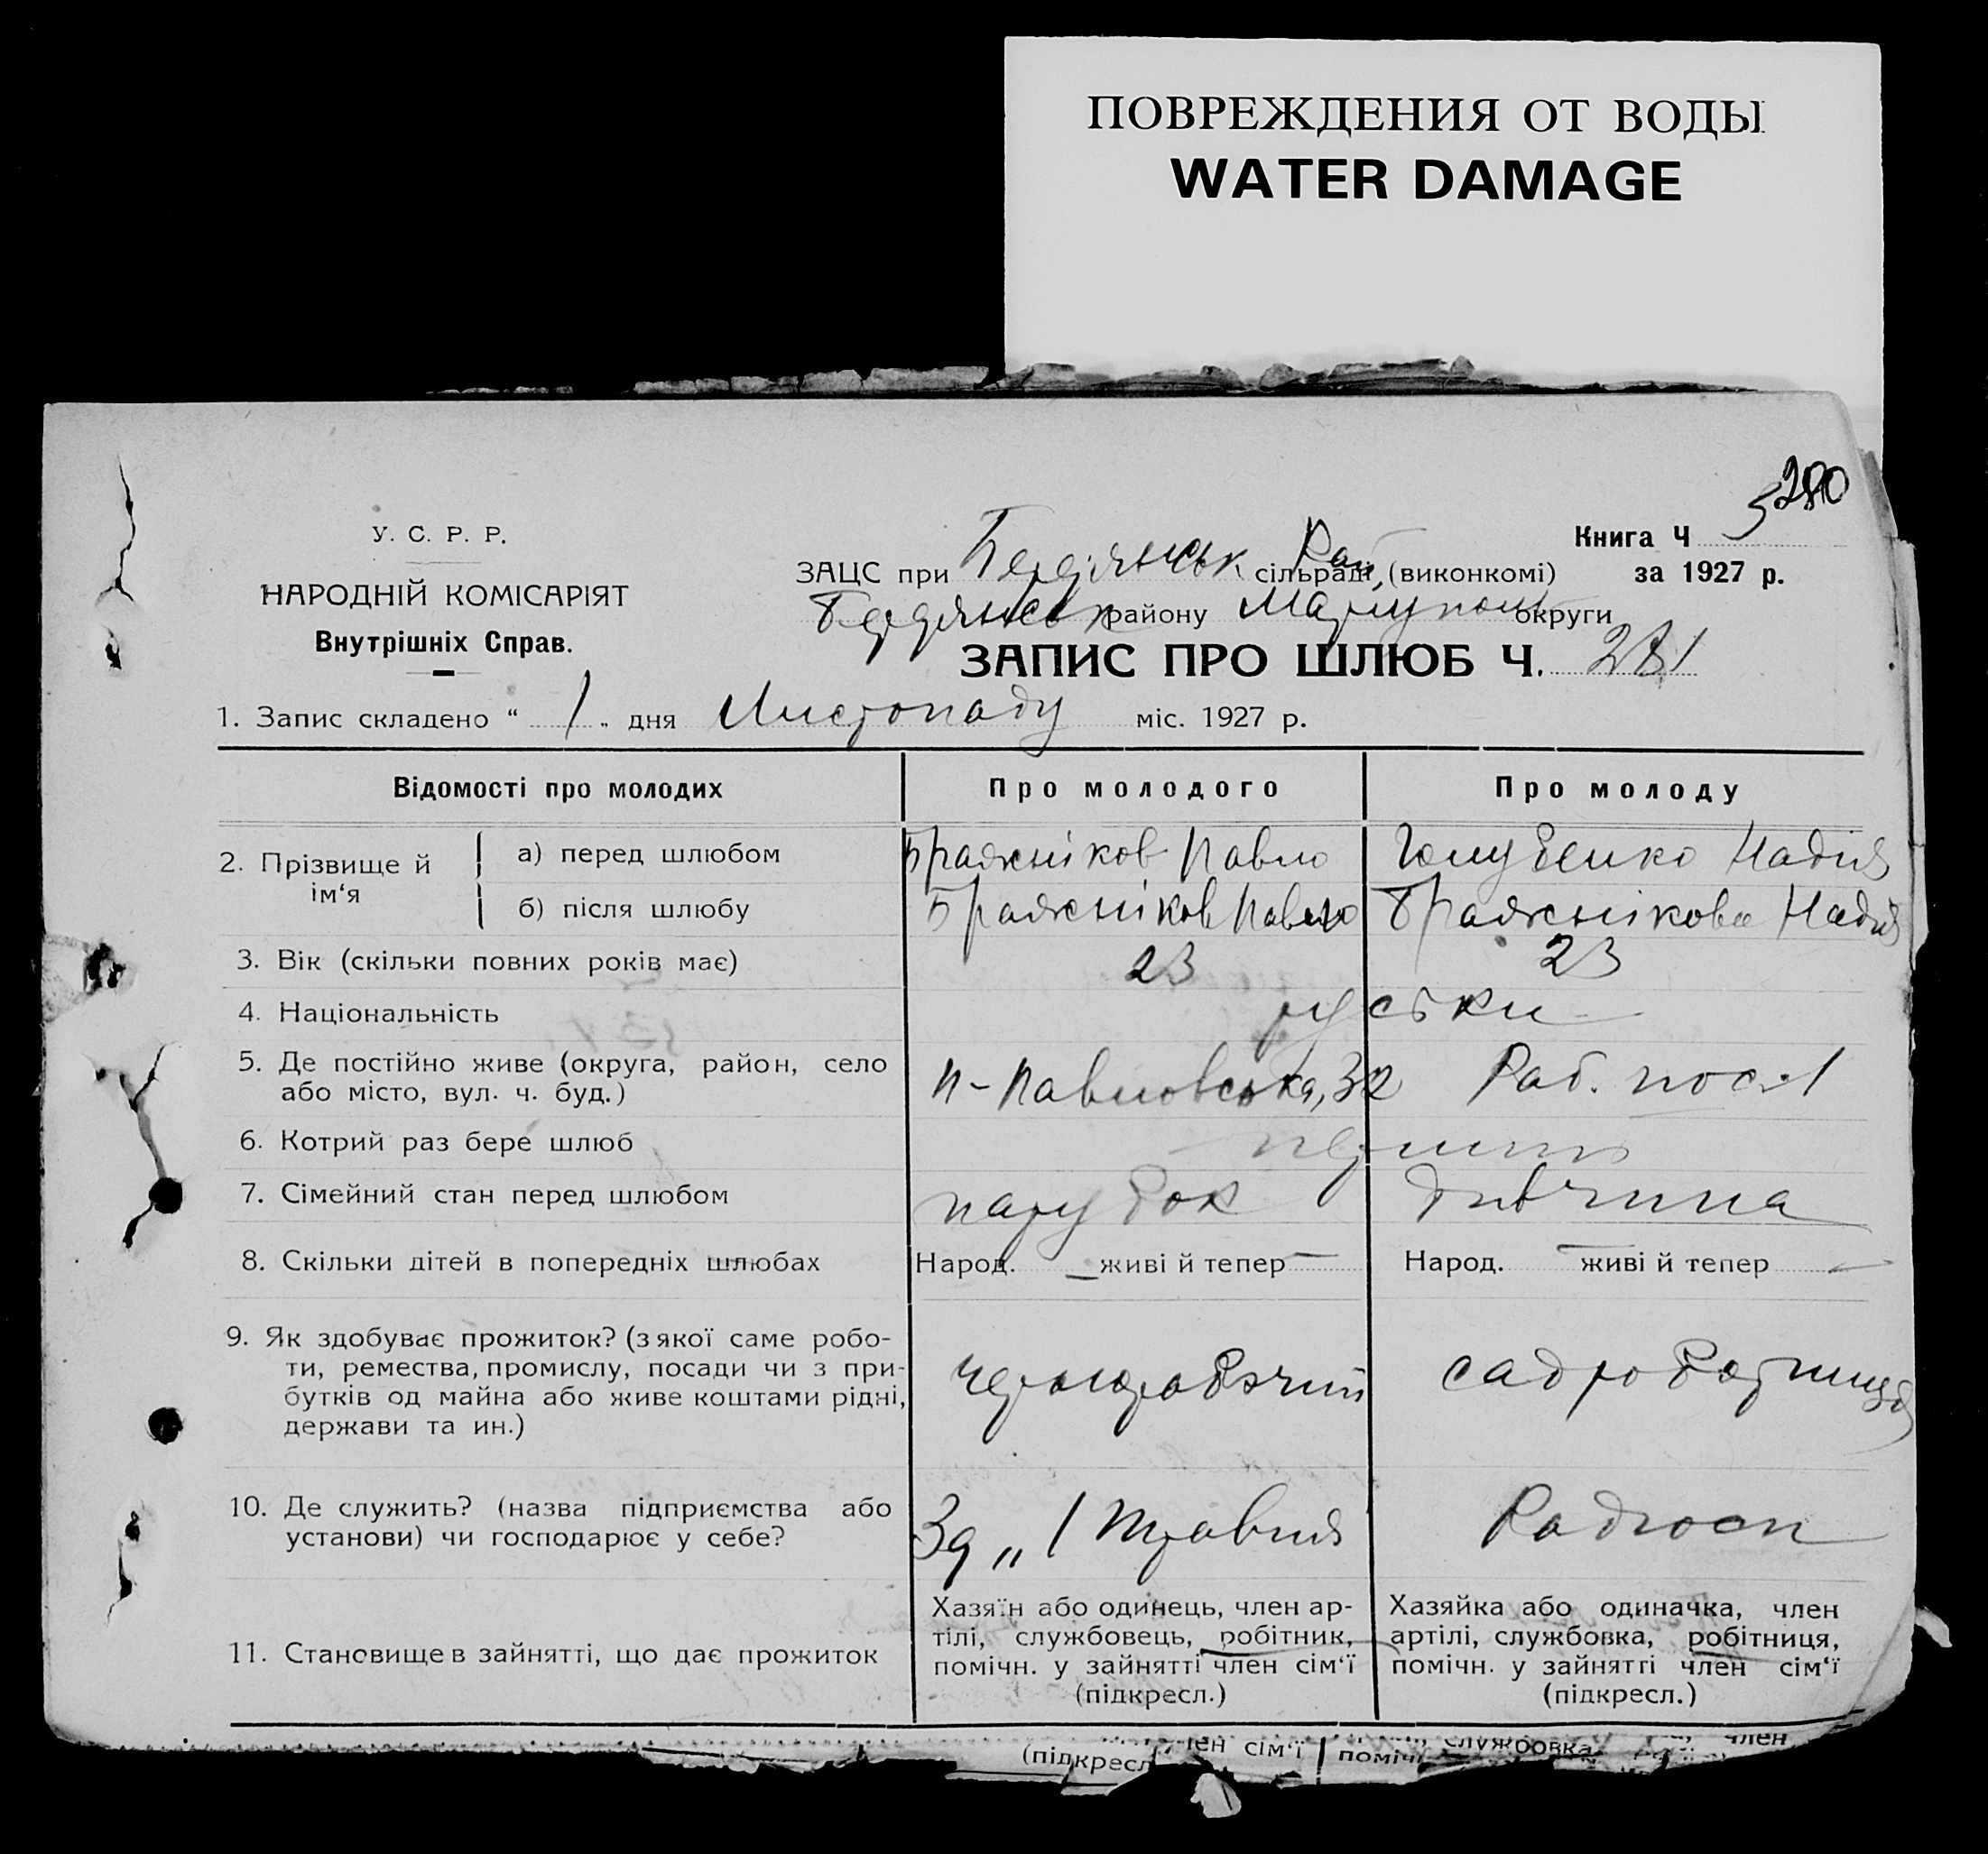 ПОВРЕЖДЕНИЯ ОТ ВОДЫ
WATER DAMAGE
280
У. С. Р. Р.
НАРОДНІЙ КОМІСАРІЯТ
Внутрішніх Справ.
Книга Ч 5
за 1927 р.
ЗАЦС при Бердянськ Рай сільраді, (виконкомі)
Бердянськ району Маріупол округи
ЗАПИС ПРО ШЛЮБ Ч. 281
1. Запис складено “ 1 „ дня Листопаду міс. 1927 р.
Відомості про молодих Про молодого Про молоду
2. Прізвище й ім‘я
а) перед шлюбом Бражніков Павло Голубенко Надія
б) після шлюбу Бражніков Павло Бражнікова Надія
3. Вік (скільки повних років має) 23 23
4. Національність руськи
5. Де постійно живе (округа, район, село
або місто, вул. ч. буд.) П-Павловська, 32 Раб. пос. 1
6. Котрий раз бере шлюб перший
7. Сімейний стан перед шлюбом парубок дівчина
8. Скільки дітей в попередніх шлюбах Народ. — живі й тепер — Народ. — живі й тепер —
9. Як здобуває прожиток? (з якої саме робо-
ти, ремества, промислу, посади чи з при-
бутків од майна або живе коштами рідні,
держави та ин.)
чорноробочий садроботниця
10. Де служить? (назва підприємства або
установи) чи господарює у себе?
Зд „ 1 Травня Радгосп
11. Становище в зайнятті, що дає прожиток
Хазяїн або одинець, член ар-
тілі, службовець, робітник,
помічн. у зайнятті член сім‘ї
(підкресл.)
Хазяйка або одиначка, член
артілі, службовка, робітниця,
помічн. у зайнятті член сім‘ї
(підкресл.)
член сім‘ї службовка, член
(підкресл